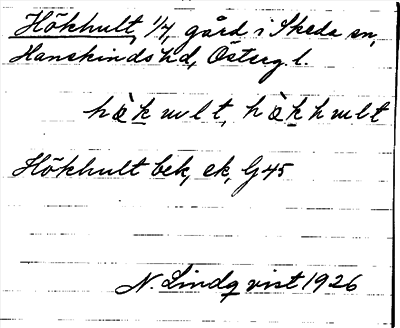 Hökhult, 1/4, gård i Skeda sn,
Hanekinds hd, Österg l.
hò̀k ult, hò̀k hult
Hökhult bek, ek, Gj 45
N. Lindqvist 1926